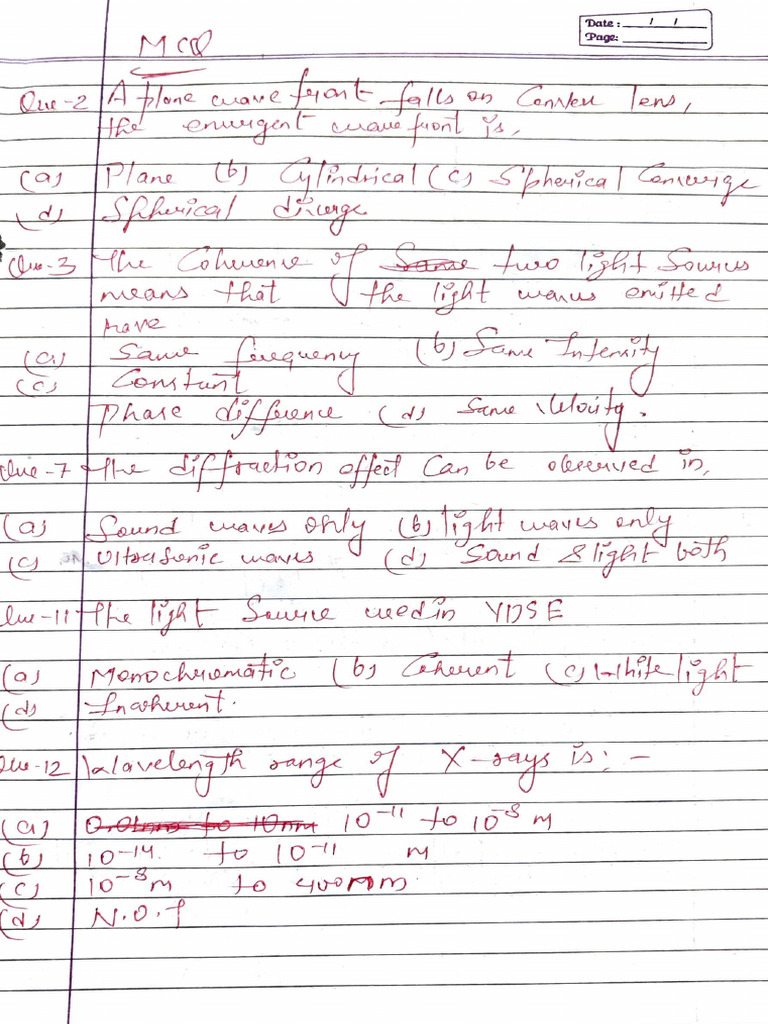 Date : / /
Page:
MCQ
Que-2 A plane wave front falls on Convex lens,
the emergent wavefront is,
(a) Plane (b) Cylindrical (c) Spherical Converge
(d) Spherical diverge
Que-3 The Coherence of Same two light Sources
means that the light waves emitted
have
(a) Same frequency (b) Same Intensity
(c) Constant
Phase difference (d) Same Velocity.
Que-7 The diffraction effect Can be observed in,
(a) Sound waves only (b) light waves only
(c) Ultrasonic waves (d) Sound & light both
Que-11 The light Source used in YDSE
(a) Monochromatic (b) Coherent (c) White light
(d) Incoherent.
Que-12 Wavelength range of X-rays is: -
(a) 0.01nm to 10nm 10⁻¹¹ to 10⁻⁸ m
(b) 10⁻¹⁴ to 10⁻¹¹ m
(c) 10⁻⁸m to 400nm.
(d) N.O.T